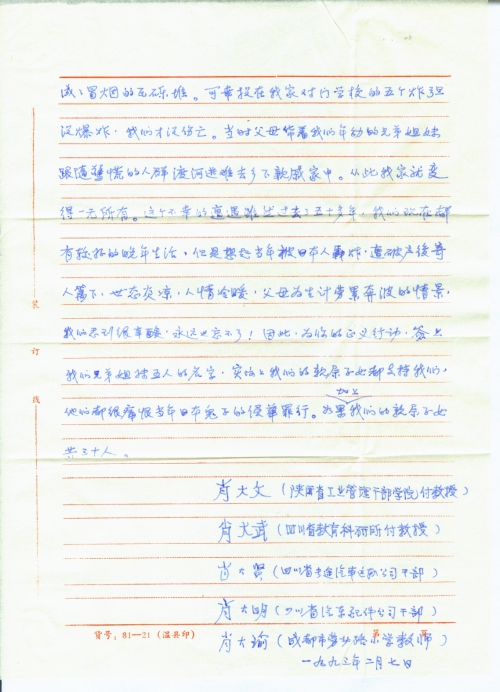 成了冒烟的瓦砾堆。可幸投在我家对门学校的五个炸弹
没爆炸，我们才没伤亡。当时父母带着我们年幼的兄弟姐妹
跟随惊慌的人群渡河逃难去乡下亲戚家中。从此我家就变
得一无所有。这个不幸的遭遇虽然过去了五十多年，我们现在都
有较好的晚年生活，但是想起当年被日本人轰炸，遭破产后寄
人篱下，世态炎凉，人情冷暖，父母为生计劳累奔波的情景，
我们感到很辛酸，永远也忘不了！因此，为你的正义行动，签上
我们兄弟姐妹五人的名字，实际上我们的敦原子女都支持我们，
他们都很痛恨当年日本鬼子的侵华罪行。如果我们的敦原子女
加上
共三十人。
肖大文（陕西省工业管理干部学院付教授）
肖大武（四川省教育科研所付教授）
肖大贤（四川省 汽车运输公司干部）
肖大明（四川省汽车配件公司干部）
肖大瑜（成都市 小学教师）
一九九三年二月七日
装
订
线
货号：81—21（温县印） 第 页